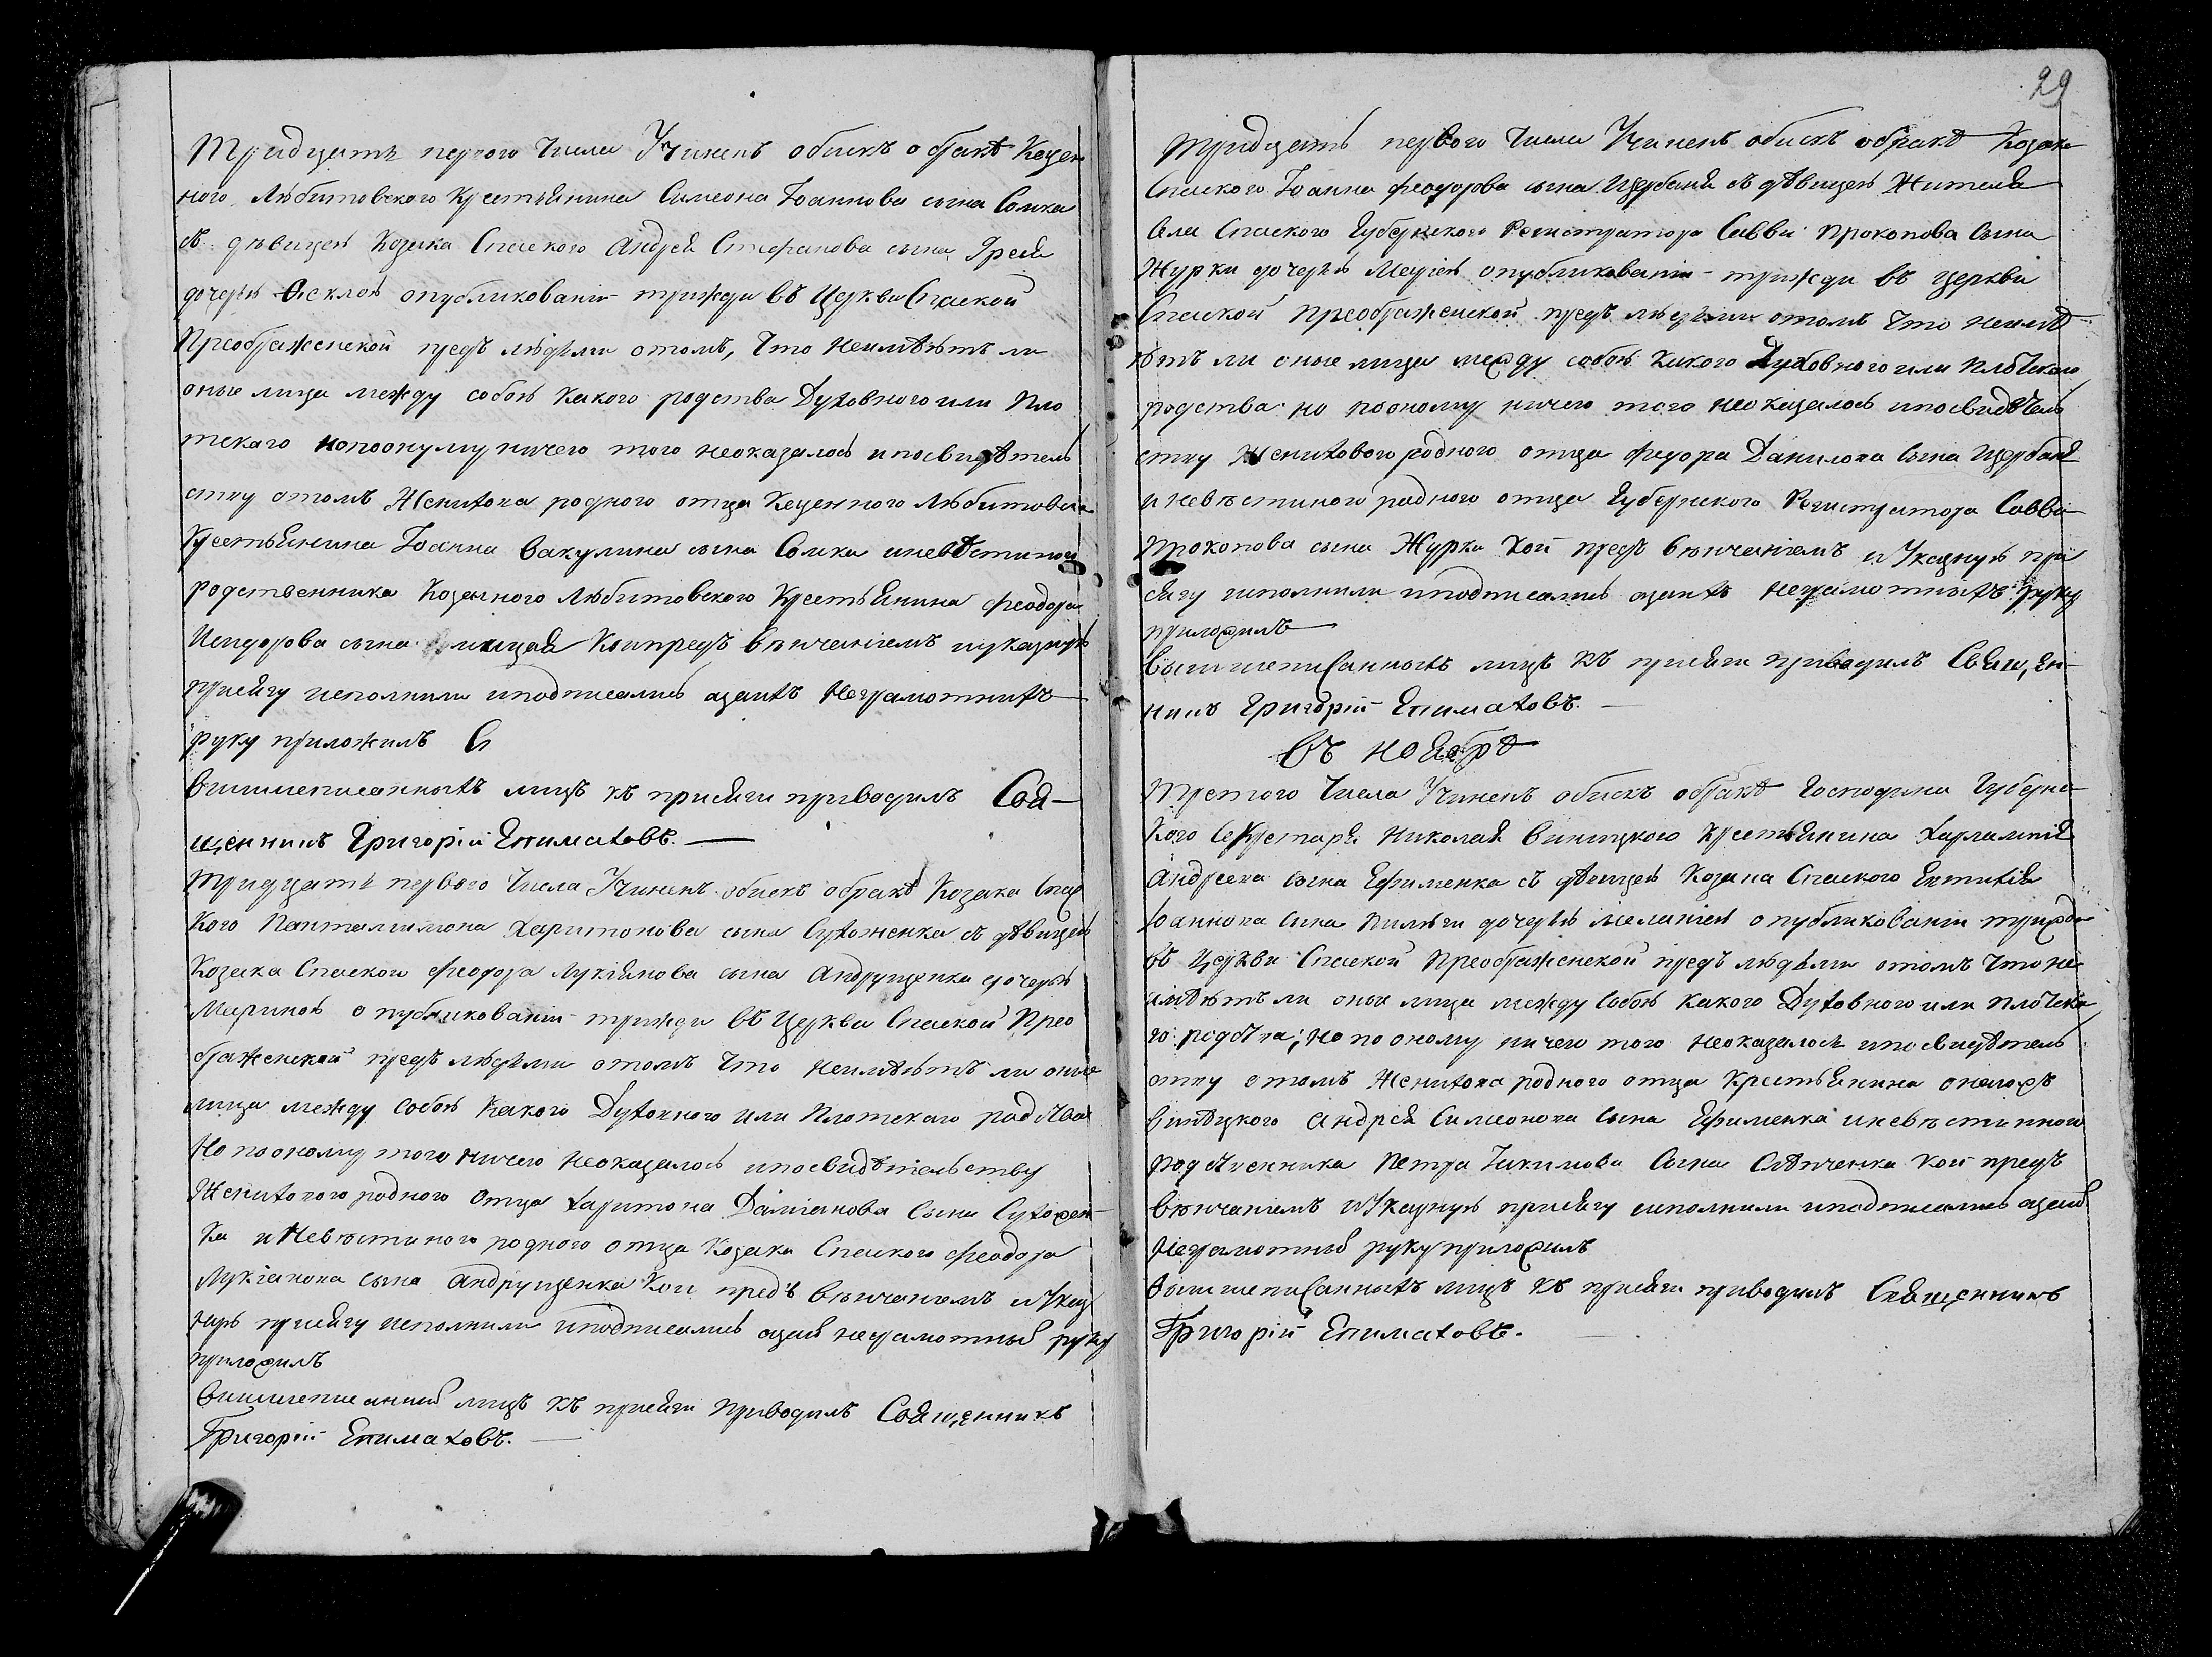 Тридцать первого Числа Учиненъ обыскъ о бракѣ Казен
ного Любитовского Крестьянина Симеона Іоаннова сына Сомка
съ дѣвицею Козака Спаского Андрея Стефанова сына Грея
дочерью Феклою опубликованіи трижди въ Церкви Спаской
Преображенской предъ людьми отомъ, Что Неимѣютъ ли
оные лица между собою Какого родства Духовного или Пло
тскаго нопооному ничего того неоказалось ипосвидѣтель
ству отомъ Женихова родного отца Казенного Любитовско
Крестьянина Іоанна Вакулина сына Сомка иневѣстиного
родственника Козенного Любитовского Крестьянина Феодора
Исидорова сына Кои предъ вѣнчаніемъ иуказную
присягу исполнили иподписались азаихъ Неграмотнихъ
руку приложилъ
Вишшеписанныхъ лицъ къ присяги приводилъ Свя-
щенникъ Григорій Епимаховъ.
Тридцать первого Числа Учиненъ обыскъ обракѣ Козака Спас
кого Пантелиимона Харитонова сына Сухоженка съ дѣвицею
Козака Спаского Феодора Лукіянова сына Андрущенка дочерью
Мариною о публикованіи трижди въ Церкви Спаской Прео
браженской предъ людьми отомъ Что Неимѣютъ ли оние
лица между собою Какого Духовного или Плотскаго родства
Но пооному того ничего неоказалось ипосвидѣтельству
Женихового родного Отца Харитона Даміанова Сына Сухожен
ка и Невѣстиного родного отца Козака Спаского Феодора
Лукіанова сына Андрущенка Кои предъ вѣнчаніемъ и Указ
ную присягу исполнили иподписались азаихъ неграмотныхъ руку
приложилъ
Вишшеписанныхъ лицъ къ присяги приводилъ Священникъ
Григорій Епимаховъ.
29
Тридцать первого Числа Учиненъ обыскъ обракѣ Козака
Спаского Іоанна Феодорова сына Щербаня съ дѣвицею Жителя
Села Спаского Губернского Регистратора Саввы Прокопова Сына
Журки дочерью опубликованіи трижди въ церкви
Спаской Преображенской предъ людьми отомъ Что неимѣ
ютъ ли оные лица между собою Какого Духовного или Плотского
родства но пооному ничего того неоказалось ипосвидѣтель
ству Женихового родного отца Федора Данилова Сына Щербаня
и невѣстиного родного отца Губернского Регистратора Саввы
Прокопова сына Журки Кои предъ вѣнчаніемъ и Указную при
сягу исполнили иподписались азаихъ неграмотныхъ руку
приложилъ
Вышшеписанныхъ лицъ къ присяги приводилъ Священ-
никъ Григорій Епимаховъ.
Въ Ноябрѣ
Третого Числа Учиненъ обыскъ обракѣ Господина Губернс
Кого Секретаря Николая Виницкого Крестьянина Харлампія
Андреева сына Ефименка съ дѣвицею Козака Спаского
Іоаннова Сына дочерью Меланіею о публикованіи трижди
въ Церкви Спаской Преображенской предъ людьми отомъ Что не
имѣютъ ли оные лица между Собою Какого Духовного или Плотска
го родства; но по оному ничего того неоказалось ипосвидѣтель
ству отомъ Женихова родного отца Крестьянина оногожъ
Виницкого Андрея Симеонова Сына Ефименка и невѣстинного
родственника Петра Сына Слѣпченка Кои предъ
вѣнчаніемъ и Указную присягу исполнили иподписались азаихъ
неграмотныхъ руку приложилъ
Вышшеписанныхъ лицъ къ присяги приводилъ Священникъ
Григорій Епимаховъ.